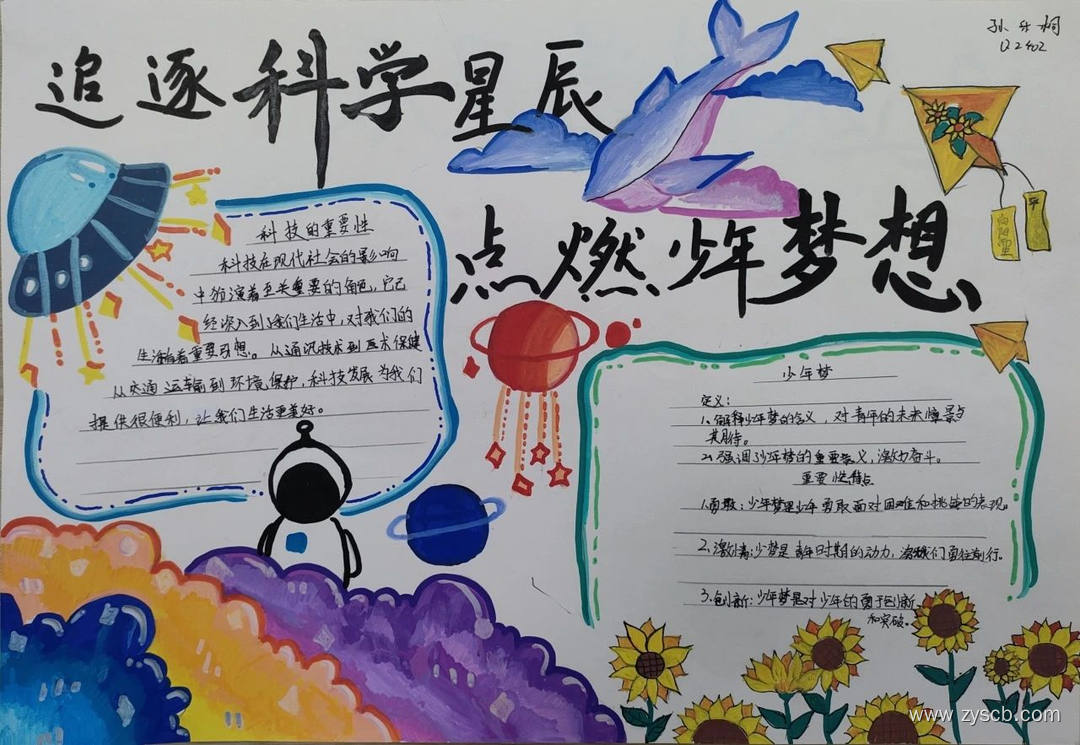 追逐科学星辰
孙乐桐
U2402
点燃少年梦想
向阳里
科技的重要性
科技在现代社会的影响
中扮演着至关重要的角色,它已
经深入到我们生活中,对我们的
生活有着重要思想。从通讯技术到医术保健
从交通运输到环境保护,科技发展为我们
提供很便利,让我们生活更美好。
少年梦
定义:
1、解释少年梦的含义,对青年的未来憧景与
其期待。
2、强调少年梦的重要意义,激励奋斗。
重要性特点
1.勇敢:少年梦是少年勇敢面对困难和挑战的表现。
2、激情:少梦是青年时期的动力,激我们勇往前行。
3、创新:少年梦是对少年的勇于创新
和突破。
www.zyscb.com